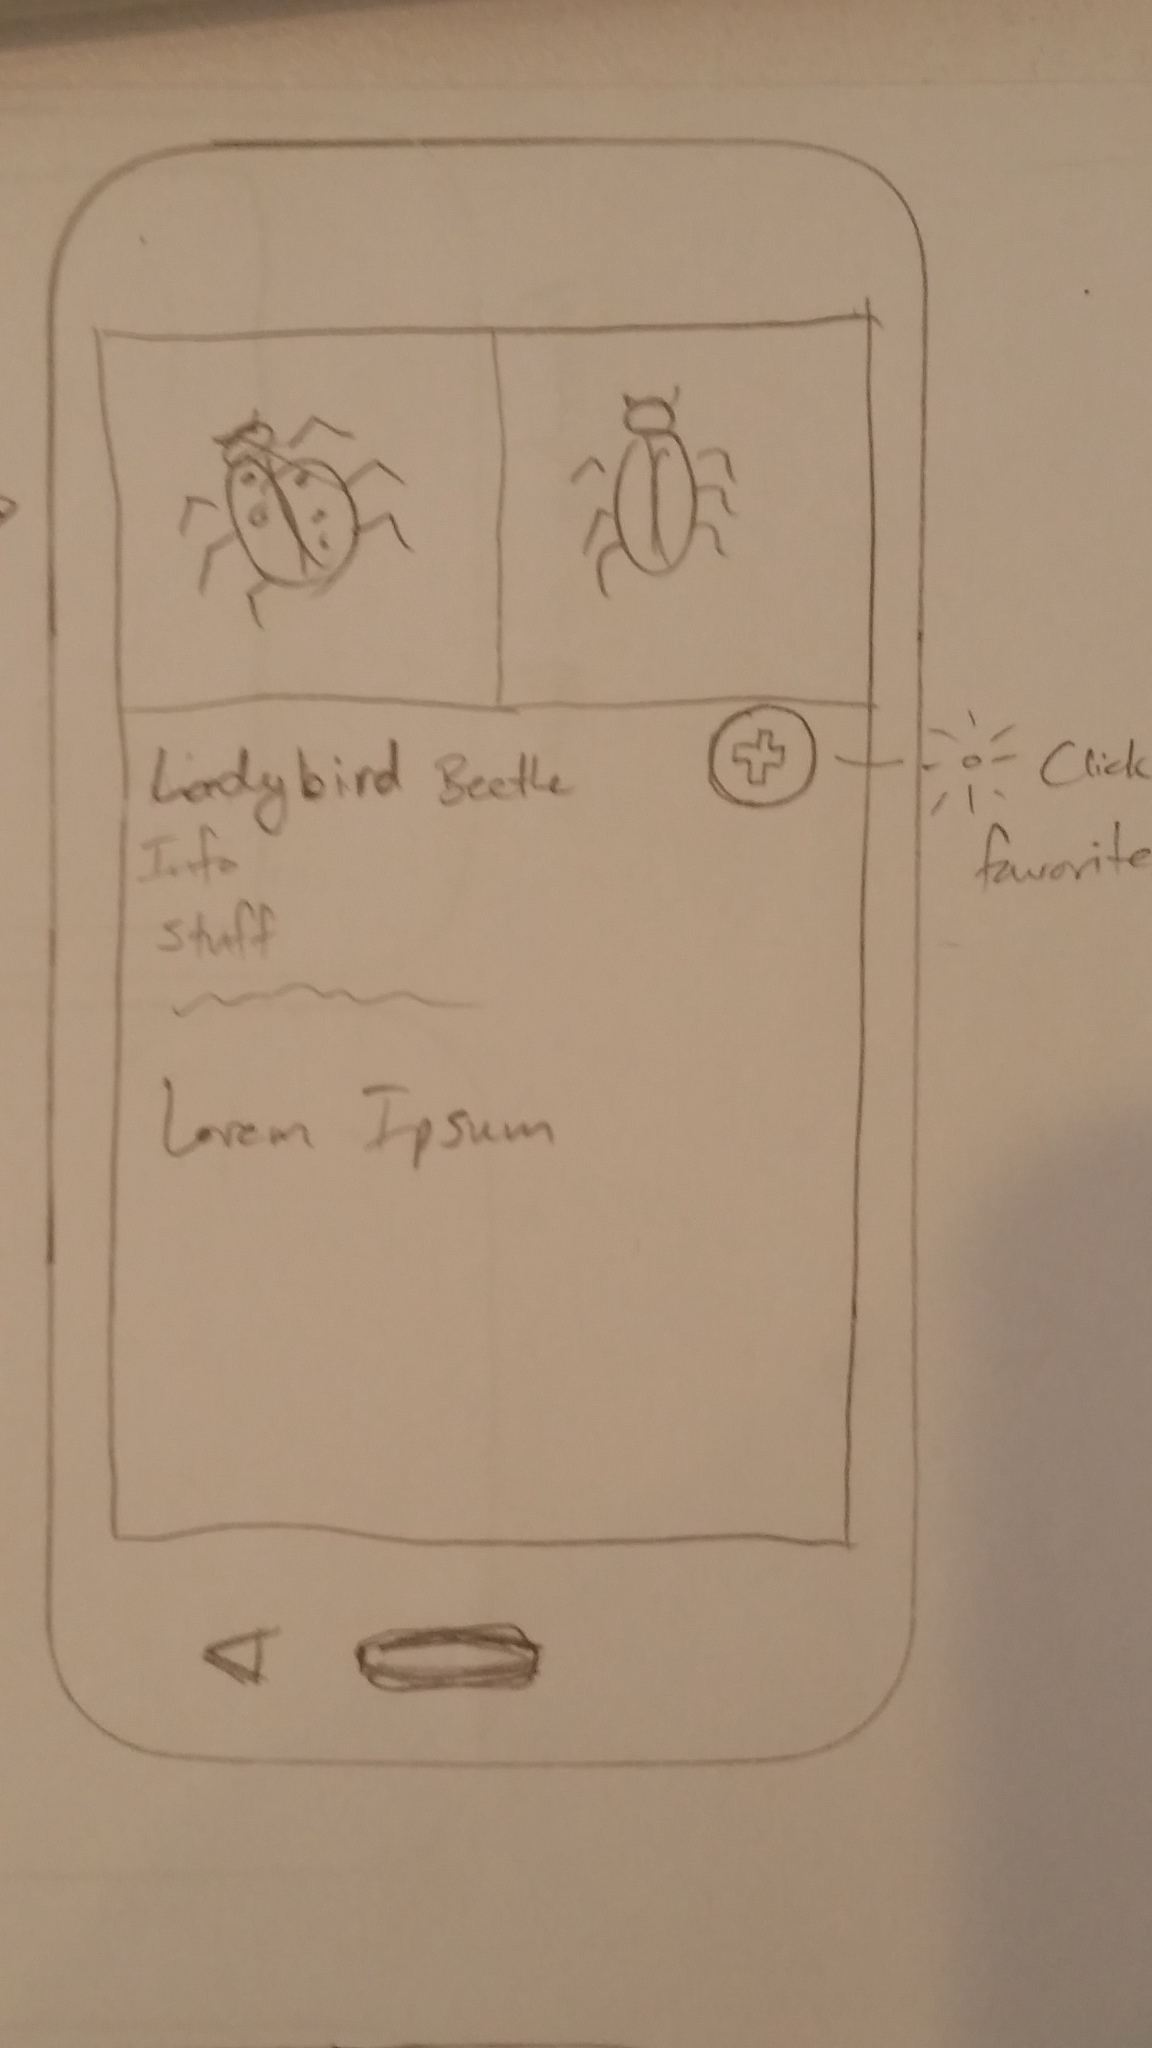 Ladybird Beetle
Info
stuff
Lorem Ipsum
Click
favorite